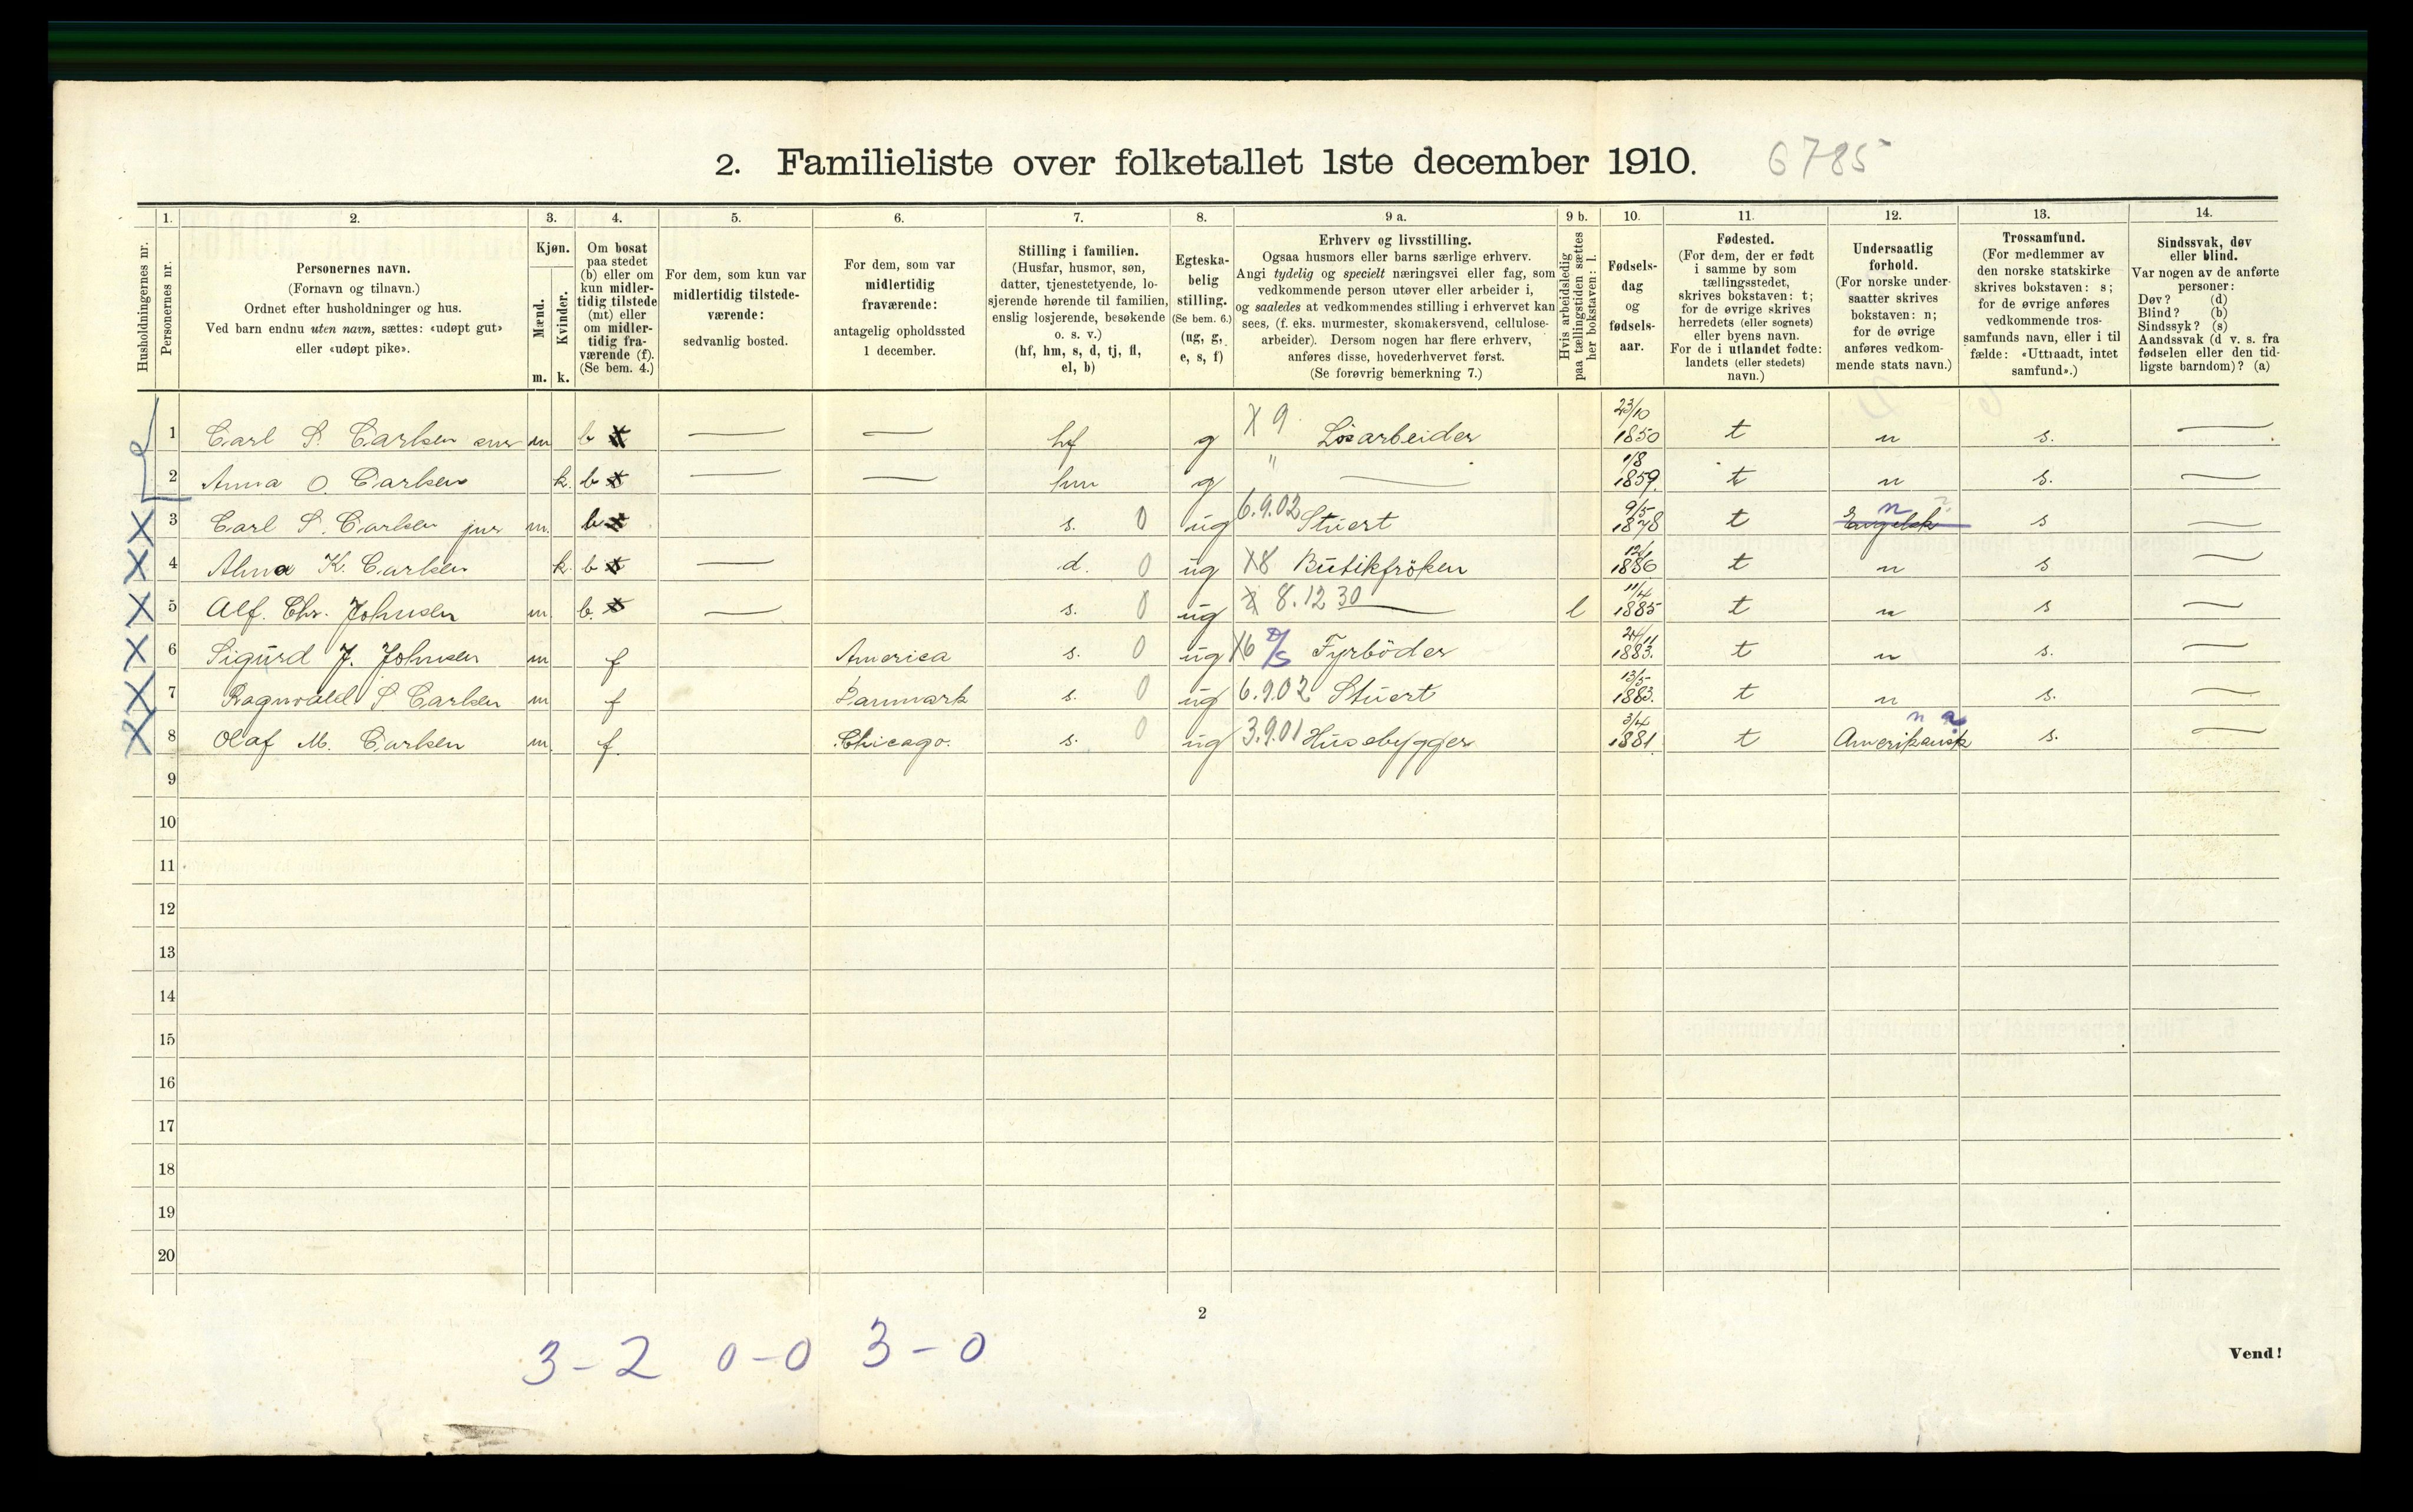 2. Familieliste over folketallet 1ste december 1910. 6785
1. 2. 3. 4. 5. 6. 7. 8. 9 a. 9 b. 10. 11. 12. 13. 14.
Husholdningernes nr.
Personernes nr.
Personernes navn.
(Fornavn og tilnavn.)
Ordnet efter husholdninger og hus.
Ved barn endnu uten navn, sættes: «udøpt gut»
eller «udøpt pike».
Kjøn.
Mænd.
Kvinder.
m. k.
Om bosat
paa stedet
(b) eller om
kun midler-
tidig tilstede
(mt) eller
om midler-
tidig fra-
værende (f).
(Se bem. 4.)
For dem, som kun var
midlertidig tilstede-
værende:
sedvanlig bosted.
For dem, som var
midlertidig
fraværende:
antagelig opholdssted
1 december.
Stilling i familien.
(Husfar, husmor, søn,
datter, tjenestetyende, lo-
sjerende hørende til familien,
enslig losjerende, besøkende
o. s. v.)
(hf, hm, s, d, tj, fl,
el, b)
Egteska-
belig
stilling.
(Se bem. 6.)
(ug, g,
e, s, f)
Erhverv og livsstilling.
Ogsaa husmors eller barns særlige erhverv.
Angi tydelig og specielt næringsvei eller fag, som
vedkommende person utøver eller arbeider i,
og saaledes at vedkommendes stilling i erhvervet kan
sees, (f. eks. murmester, skomakersvend, cellulose-
arbeider). Dersom nogen har flere erhverv,
anføres disse, hovederhvervet først.
(Se forøvrig bemerkning 7.)
Hvis arbeidsledig
paa tællingstiden sættes
her bokstaven: l.
Fødsels-
dag
og
fødsels-
aar.
Fødested.
(For dem, der er født
i samme by som
tællingsstedet,
skrives bokstaven: t;
for de øvrige skrives
herredets (eller sognets)
eller byens navn.
For de i utlandet fødte:
landets (eller stedets)
navn.)
Undersaatlig
forhold.
(For norske under-
saatter skrives
bokstaven: n;
for de øvrige
anføres vedkom-
mende stats navn.)
Trossamfund.
(For medlemmer av
den norske statskirke
skrives bokstaven: s;
for de øvrige anføres
vedkommende tros-
samfunds navn, eller i til
fælde: «Uttraadt, intet
samfund».)
Sindssvak, døv
eller blind.
Var nogen av de anførte
personer:
Døv? (d)
Blind? (b)
Sindssyk? (s)
Aandssvak (d v. s. fra
fødselen eller den tid-
ligste barndom)? (a)
1 Carl S. Carlsen snr m b hf g X 9 Løsarbeider 23/10 1850 t n s.
2 Anna O. Carlsen k. b hm g " 1/8 1859. t n s.
3 Carl S. Carlsen jnr m. b s. 0 ug 6.9.02 Stuert 9/5 1878 t Engelsk n ? s
4 Alma K. Carlsen k. b d. 0 ug X8 Butikfröken 1886 t n s
5 Alf. Chr. Johnsen m b. s. 0 ug 8.12 30 l 11/4 1885 t n s
6 Sigurd J. Johnsen m f America s. 0 ug X6 D/S Fyrböder 24/11 1883. t n s.
7 Ragnvald S Carlsen m f Danmark s. 0 ug 6.9.02 Stuert 13/5 1883. t n s.
8 Olaf M. Carlsen m. f. Chicago. s. 0 ug 3.9.01 Husebygger 3/4 1881. t Amerikansk n s.
9
10
11
12
13
14
15
16
17
18
19
20
2
3 - 2 0 - 0 3 - 0
Vend!